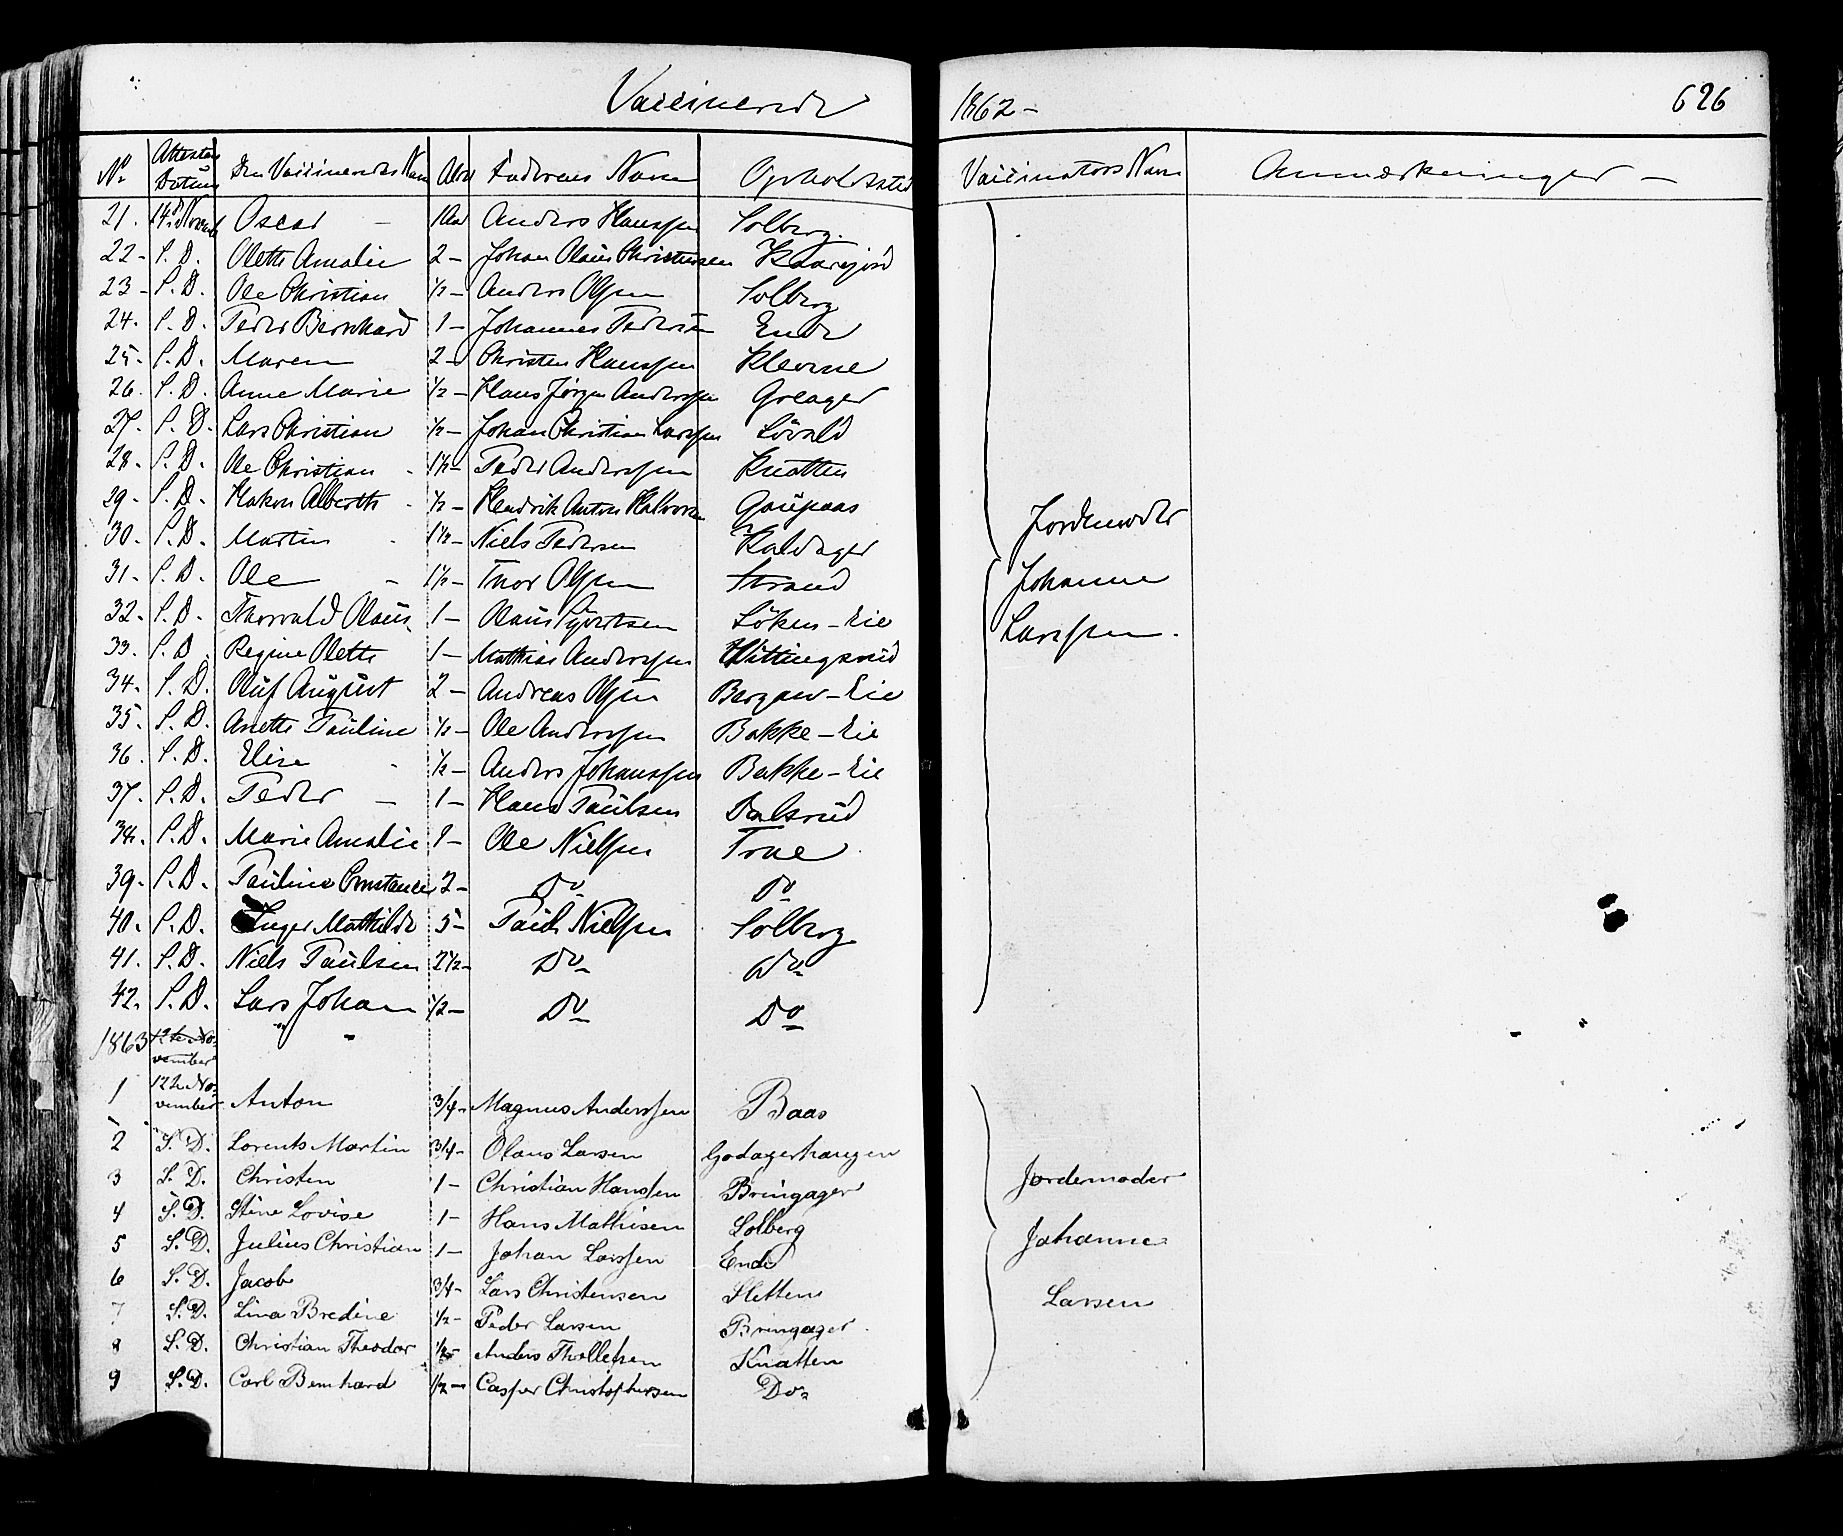 Vaccinerede 1862 - 626
No Attestens Datum Den Vaccineredes Navn Alder Faderens Navn Opholdssted Vaccinators Navn Anmærkninger -
21. 14de Novemb Oscar - 1 Aar Anders Hanssen Solberg.
22 - S. D. Olette Amalie 2 - Johan Olaus Christensen
23 - S. D. Ole Christian 1/2 - Anders Olsen Solberg
24. S. D. Peder Bernhard 1 - Johannes Pedersen Ende
25 - S. D. Maren 2 - Christen Hanssen Klevene
26. S. D. Anne Marie 1/2 - Hans Jørgen Anderssen
27. S. D. Lars Christian 1/2 - Johan Christian Larssen
28. S. D. Ole Christian - 1 1/2 - Peder Anderssen Knatten
29. S. D. Hakon Alberth - 1/2 - Hendrik Anton Halvorsen Gaupaas Jordemoder
30. S. D. Martin - 1 1/2 - Niels Pedersen Kaldager
31. S. D. Ole - 1 1/2 - Thor Olsen Strand Johanne
32. S. D. Thorvald Olaus 1 - Olaus Syvertsen Löken - Eie Larssen.
33. S. D. Regine Olette 1 - Mathias Anderssen Hvittingsrud
34. S. D. Oluf August 2 - Andreas Olsen Berger - Eie
35. S. D. Anette Pauline 1/2 - Ole Anderssen Bakke - Eie
36. S. D. Elise - 1/2 - Anders Johanssen Bakke - Eie
37. S. D. Peder - 1 - Hans Paulsen Dalsrud
38. S. D. Marie Amalie 1 - Ole Nielsen
39. S. D. Pauline Constance 2 - Do Do
40. S. D. Inger Mathilde 5 - Paul Nielsen Solberg
41. S. D. Niels Paulsen 2 1/2 - Do Do
42. S. D. Lars Johan 1/2 - Do Do
1863 12te November " "
1 12te November Anton 3/4 - Magnus Anderssen Baas
2 S. D. Lorents Martin 3/4 - Olaus Larsen Godagerhaugen
3 S. D. Christen 1 - Christian Hanssen Bringager Jordemoder
4 S. D. Stine Lovise 1 - Hans Mathisen Solberg
5 S. D. Julius Christian 1 - Johan Larssen Ende Johanne
6 S. D. Jacob 3/4 - Lars Christensen Sletten Larsen
7 S. D. Lina Bredine 1/2 - Peder Larsen Bringager
8 S. D. Christian Theodor 1/2 - Anders Thollefsen Knatten
9 S. D. Carl Bernhard 1/2 - Casper Christophersen Do